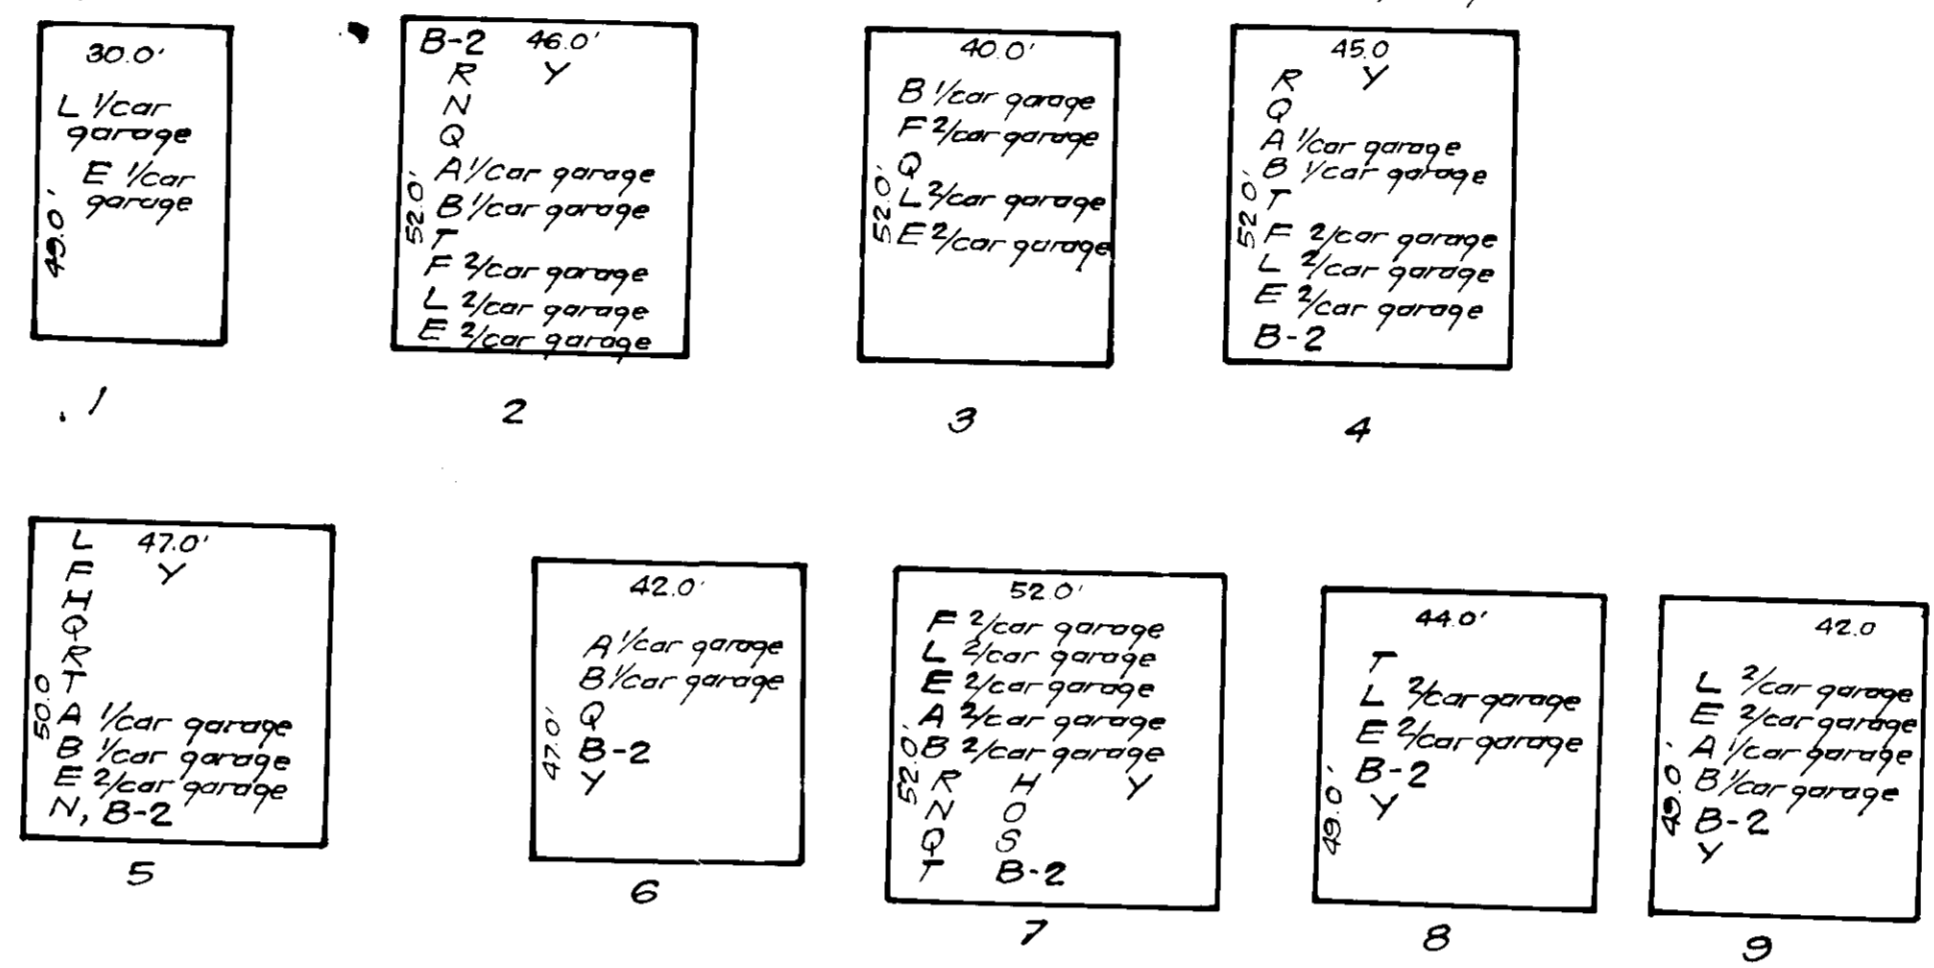 30.0'
L 1/car
garage
E 1/car
garage
49.0'
1
B-2 46.0'
R Y
N
Q
A 1/car garage
B 1/car garage
T
F 2/car garage
L 2/car garage
E 2/car garage
52.0'
2
40.0'
B 1/car garage
F 2/car garage
Q
L 2/car garage
E 2/car garage
52.0'
3
45.0
R Y
Q
A 1/car garage
B 1/car garage
T
F 2/car garage
L 2/car garage
E 2/car garage
B-2
52.0'
4
L 47.0'
F Y
H
Q
R
T
A 1/car garage
B 1/car garage
E 2/car garage
N, B-2
50.0
5
42.0'
A 1/car garage
B 1/car garage
Q
B-2
Y
47.0'
6
52.0'
F 2/car garage
L 2/car garage
E 2/car garage
A 2/car garage
B 2/car garage
R H Y
N O
Q S
T B-2
52.0'
7
44.0'
T
L 2/car garage
E 2/car garage
B-2
Y
49.0'
8
42.0
L 2/car garage
E 2/car garage
A 1/car garage
B 1/car garage
B-2
Y
49.0'
9